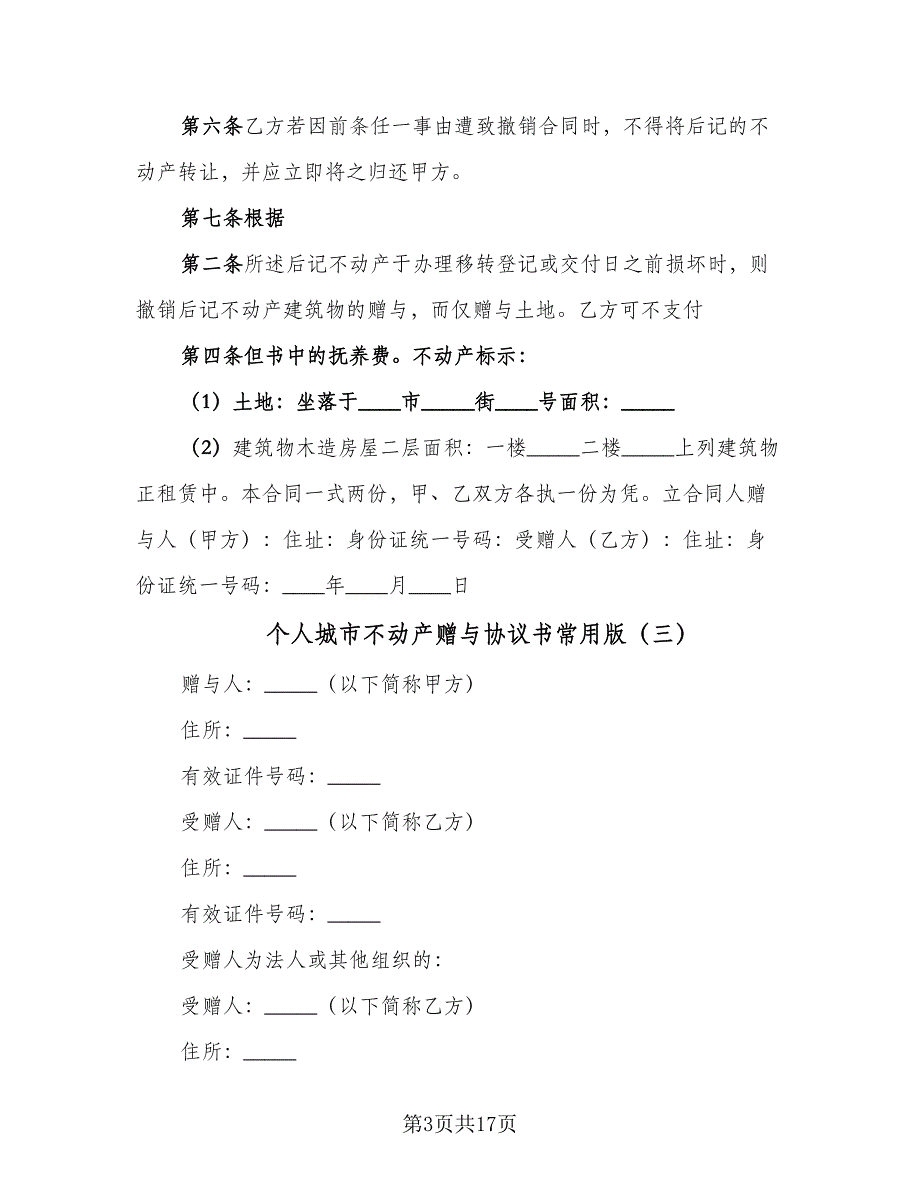 第六条乙方若因前条任一事由遭致撤销合同时，不得将后记的不
动产转让，并应立即将之归还甲方。
第七条根据
第二条所述后记不动产于办理移转登记或交付日之前损坏时，则
撤销后记不动产建筑物的赠与，而仅赠与土地。乙方可不支付
第四条但书中的抚养费。不动产标示：
（1）土地：坐落于____市_____街____号面积：_____
（2）建筑物木造房屋二层面积：一楼_____二楼_____上列建筑物
正租赁中。本合同一式两份，甲、乙双方各执一份为凭。立合同人赠
与人（甲方）：住址：身份证统一号码：受赠人（乙方）：住址：身
份证统一号码：____年____月____日
个人城市不动产赠与协议书常用版（三）
赠与人：_____（以下简称甲方）
住所：_____
有效证件号码：_____
受赠人：_____（以下简称乙方）
住所：_____
有效证件号码：_____
受赠人为法人或其他组织的：
受赠人：_____（以下简称乙方）
住所：_____
第3页共17页